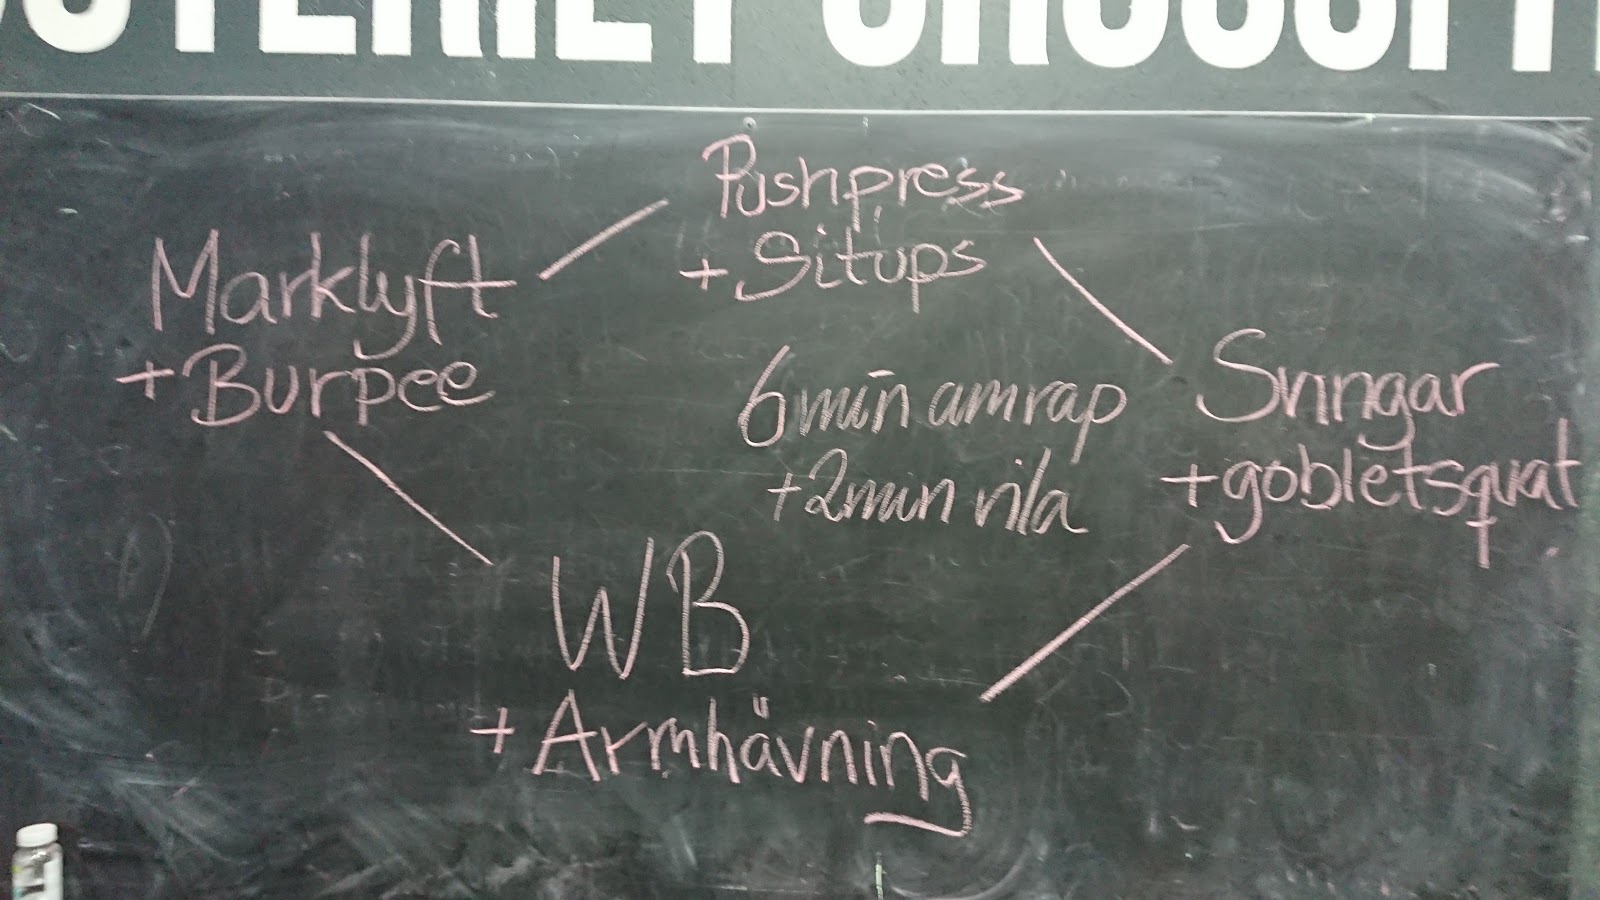 CROSSFIT
Pushpress
+ Situps
Marklyft
+ Burpee
6 min amrap
+2min vila
Svingar
+gobletsquat
WB
+ Armhävning